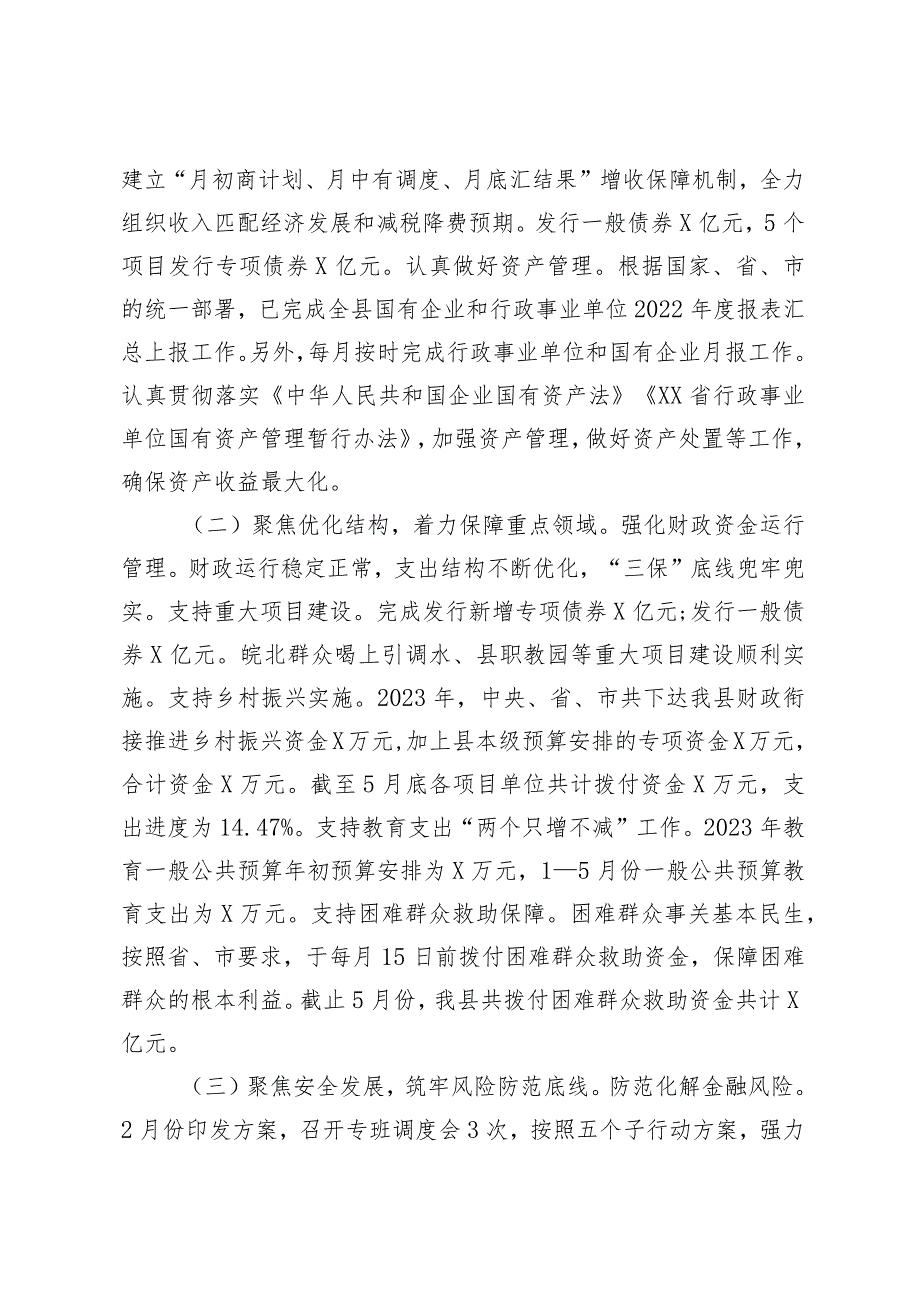 建立“月初商计划、月中有调度、月底汇结果”增收保障机制，全力
组织收入匹配经济发展和减税降费预期。发行一般债券X亿元，5个
项目发行专项债券X亿元。认真做好资产管理。根据国家、省、市
的统一部署，已完成全县国有企业和行政事业单位2022年度报表汇
总上报工作。另外，每月按时完成行政事业单位和国有企业月报工作。
认真贯彻落实《中华人民共和国企业国有资产法》《XX省行政事业
单位国有资产管理暂行办法》,加强资产管理，做好资产处置等工作，
确保资产收益最大化。
（二）聚焦优化结构，着力保障重点领域。强化财政资金运行
管理。财政运行稳定正常，支出结构不断优化，“三保”底线兜牢兜
实。支持重大项目建设。完成发行新增专项债券X亿元;发行一般债
券X亿元。皖北群众喝上引调水、县职教园等重大项目建设顺利实
施。支持乡村振兴实施。2023年，中央、省、市共下达我县财政衔
接推进乡村振兴资金X万元,加上县本级预算安排的专项资金X万元，
合计资金X万元。截至5月底各项目单位共计拨付资金X万元，支
出进度为14.47%。支持教育支出“两个只增不减”工作。2023年教
育一般公共预算年初预算安排为X万元，1—5月份一般公共预算教
育支出为X万元。支持困难群众救助保障。困难群众事关基本民生，
按照省、市要求，于每月15日前拨付困难群众救助资金，保障困难
群众的根本利益。截止5月份，我县共拨付困难群众救助资金共计X
亿元。
（三）聚焦安全发展，筑牢风险防范底线。防范化解金融风险。
2月份印发方案，召开专班调度会3次，按照五个子行动方案，强力